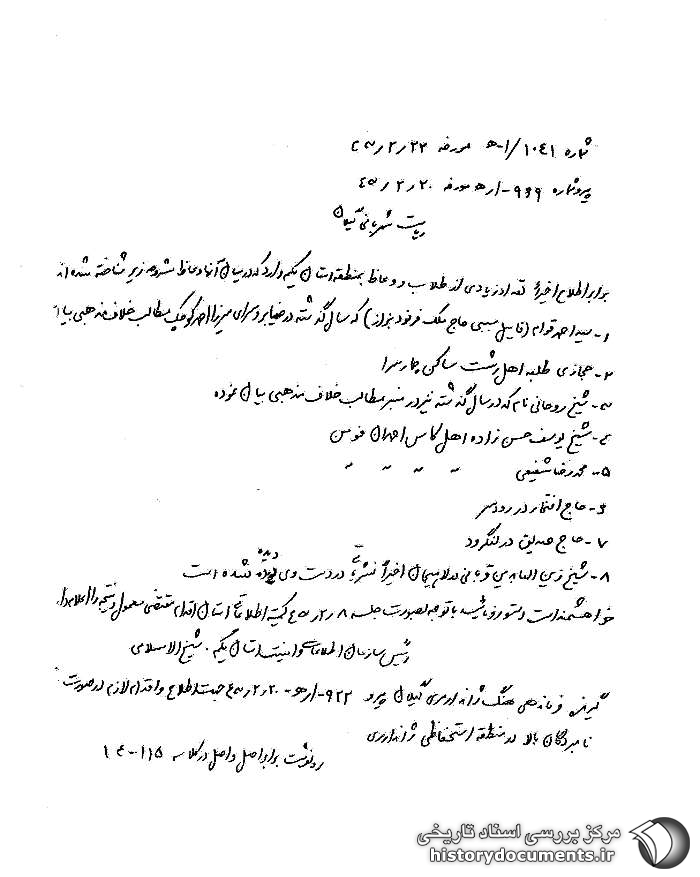 شماره ۱۰۴۱/ ۱-ه‍ مورخه ۲۳/ ۲/ ۴۵
پیرو شماره ۹۶۹-/ ه‍ مورخه ۲۰/ ۲/ ۴۵
ریاست شهربانی گیلان
برابر اطلاع اخیراً تعداد زیادی از طلاب و وعاظ بمنطقه استان یکم وارد که در میان آنها وعاظ مشروحه زیر شناخته شده اند
۱- سید احمد قوام (فامیل سببی حاج ملک فرنود بزاز) که سال گذشته در ضیابر و سرای میرزا احمد کوچک مطالب خلاف مذهبی بیا
۲- حجازی طلبه اهل رشت ساکن چمارسرا
۳- شیخ روحانی نام که در سال گذشته نیز در منبر مطالب خلاف مذهبی بیان نموده
۴- شیخ یوسف حسن زاده اهل کاس احمدان فومن
۵- محمدرضا شفیعی " " " "
۶- حاج افتخار در رودسر
۷- حاج صدیق در لنگرود
۸- شیخ زین العابدین قربانی در لاهیجان اخیراً نشریاتی در دست وی دیده شده است
خواهشمند است دستور فرمائید با توجه بصورت جلسه ۸/ ۲/ ۴۵ کمیته اطلاعاتی استان اقدام مقتضی معمول و نتیجه را اعلام دارند
رئیس سازمان اطلاعات و امنیت استان یکم. شیخ الاسلامی
گیرنده فرماندهی هنگ ژاندارمری گیلان پیرو ۹۲۲-/ ه‍ - ۲۰/ ۲/ ۴۵ جهت اطلاع و اقدام لازم در صورت
نامبردگان بالا در منطقه استحفاظی ژاندارمری
رونوشت برابر اصل و اصل در کلاسه ۱۱۵-۱۴
مرکز بررسی اسناد تاریخی
historydocuments.ir